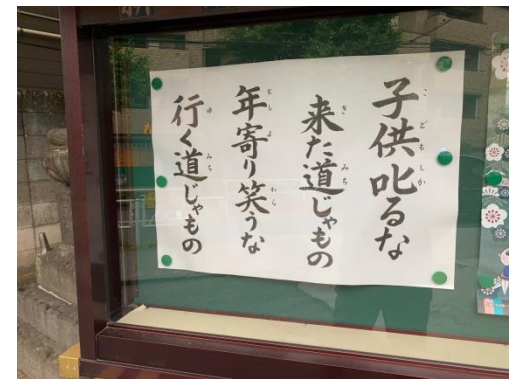 子供叱るな
来た道じゃもの
年寄り笑うな
行く道じゃもの